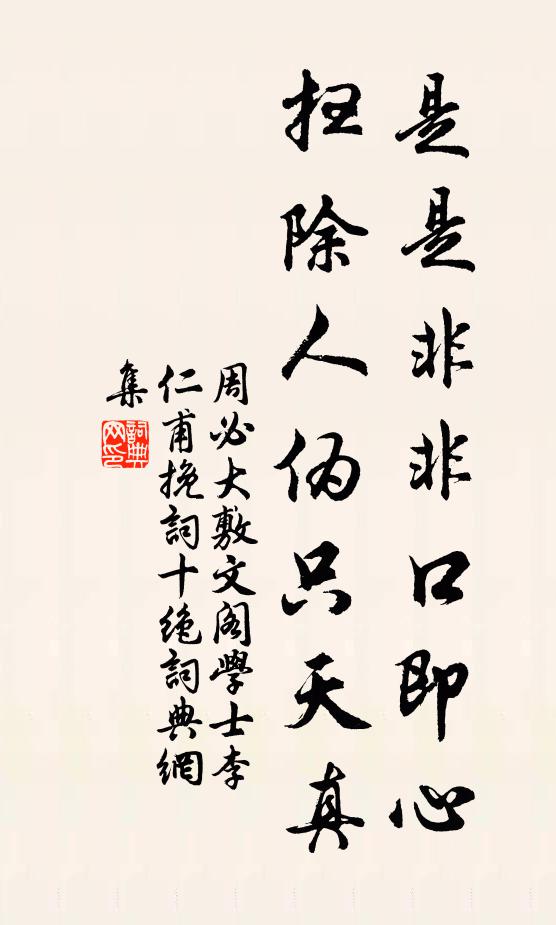 是是非非口即心
扫除人伪只天真
周必大敷文阁學士李
仁甫挽詞十绝詞典網
集
詞典
网印